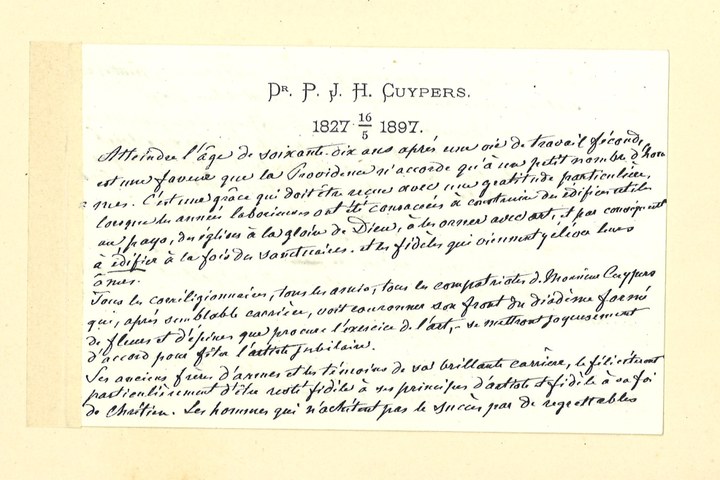 Dr. P. J. H. Cuypers.
1827 16/5 1897.
Atteindre l'âge de soixante-dix ans après une vie de travail féconde,
est une faveur que la Providence n'accorde qu'à un petit nombre d'hom
mes. C'est une grâce qui doit être reçue avec une gratitude particulière,
lorsque les années laborieuses ont été consacrées à construire des édifices utiles
au pays, des églises à la gloire de Dieu, à les orner avec art, et par conséquent
à édifier à la fois des sanctuaires et les fidèles qui viennent y élever leurs
âmes.
Tous les coreligionnaires, tous les amis, tous les compatriotes de Monsieur Cuypers
qui, après semblable carrière, voit couronner son front du diadème formé
de fleurs et d'épines que procure l'exercice de l'art, – se mettront joyeusement
d'accord pour fêter l'artiste jubilaire.
Ses anciens frères d'armes et les témoins de sa brillante carrière, le féliciteront
particulièrement d'être resté fidèle à ses principes d'artiste et fidèle à sa foi
de Chrétien. Les hommes qui n'achètent pas le succès par de regrettables